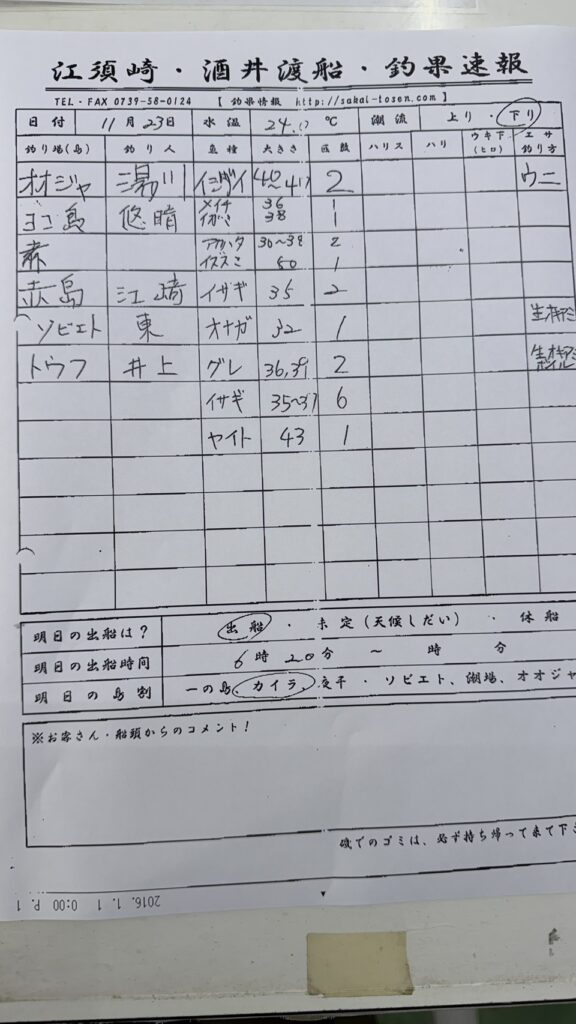 江須崎・酒井渡船・釣果速報
TEL・FAX 0739-58-0124 【 釣果情報 http://sakai-tosen.com 】
日付 11月23日 水温 24.0 ℃ 潮流 上り・下り
釣り場(島) 釣り人 魚種 大きさ 匹数 ハリス ハリ ウキ下(ヒロ) エサ釣り方
オオジャ 湯川 イシダイ 40〜47 2 ウニ
ヨコ島 悠晴 メイチ 36 1
イガミ 38 1
赤 アカハタ 30〜38 2
イズスミ 50 1
赤島 江崎 イサギ 35 2
ソビエト 東 オナガ 32 1 生オキアミ
トウフ 井上 グレ 36,39 2 生オキアミ ボイル
イサギ 35〜37 6
ヤイト 43 1
明日の出船は? 出船・未定(天候しだい)・休船
明日の出船時間 6時20分 〜 時 分
明日の島割 一の島・カイラ・交平・ソビエト、潮場、オオジャ
※お客さん・船頭からのコメント!
磯でのゴミは、必ず持ち帰って来て下さ
2016. 1. 1 0:00 P. 1